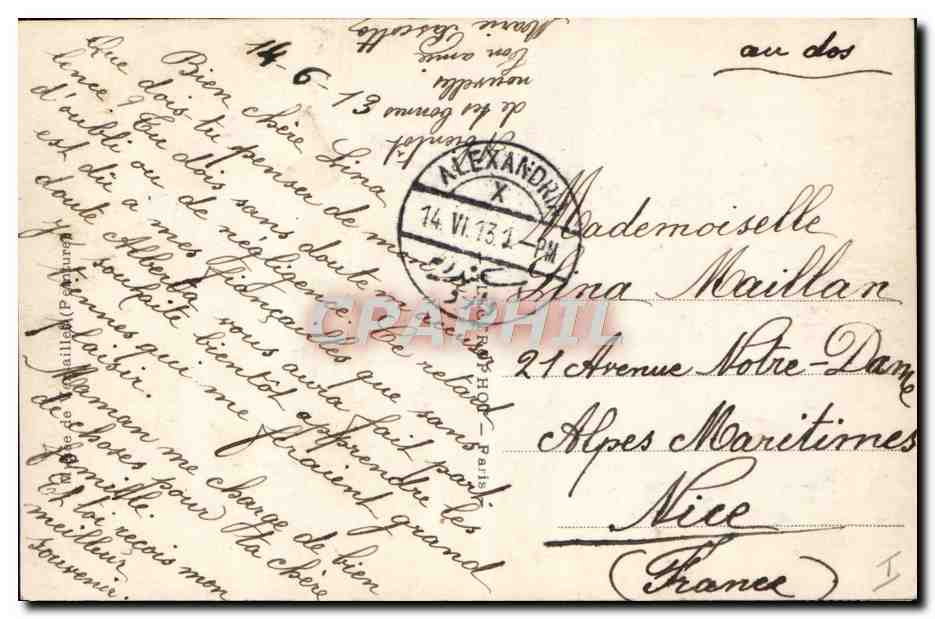 14-6-13
Bien chère Lina
Que dois tu penser de mon si-
lence? Tu dois sans doute m'accuser
d'oubli ou de négligence. Ce retard
est dû a mes fiançailles que sans
doute Alberta vous aura fait part.
J'y souhaite bientôt apprendre les
tiennes qui me feraient grand
plaisir.
Maman me charge de bien
de choses pour ta chère
famille.
Et toi reçois mon
meilleur
souvenir.
A bientôt
de tes bonnes
nouvelles
Ton amie
Marie
au dos
ALEXANDRIA
X
14.VI.13.1-PM
Mademoiselle
Lina Maillan
21 Avenue Notre-Dame
Alpes Maritimes
Nice
(France)
Musée de Versailles (Peintures)
PHOT - Paris
CPAPHIL